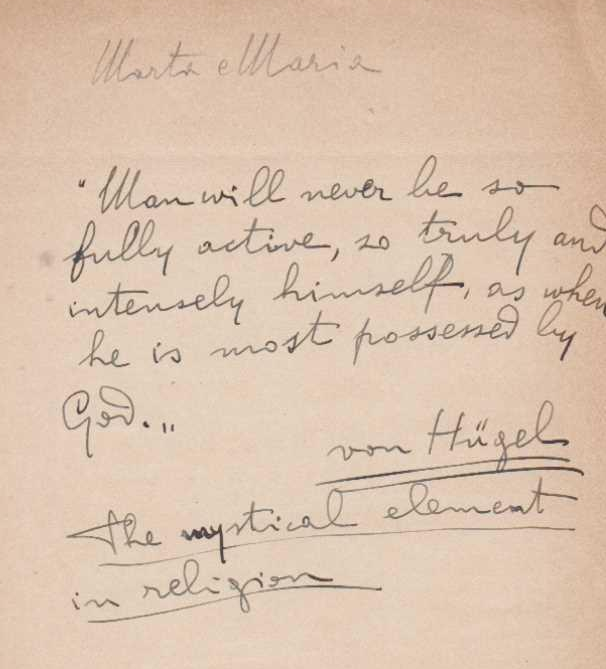 Marta e Maria
"Man will never be so
fully active, so truly and
intensely himself, as when
he is most possessed by
God.„
von Hügel
The mystical element
in religion